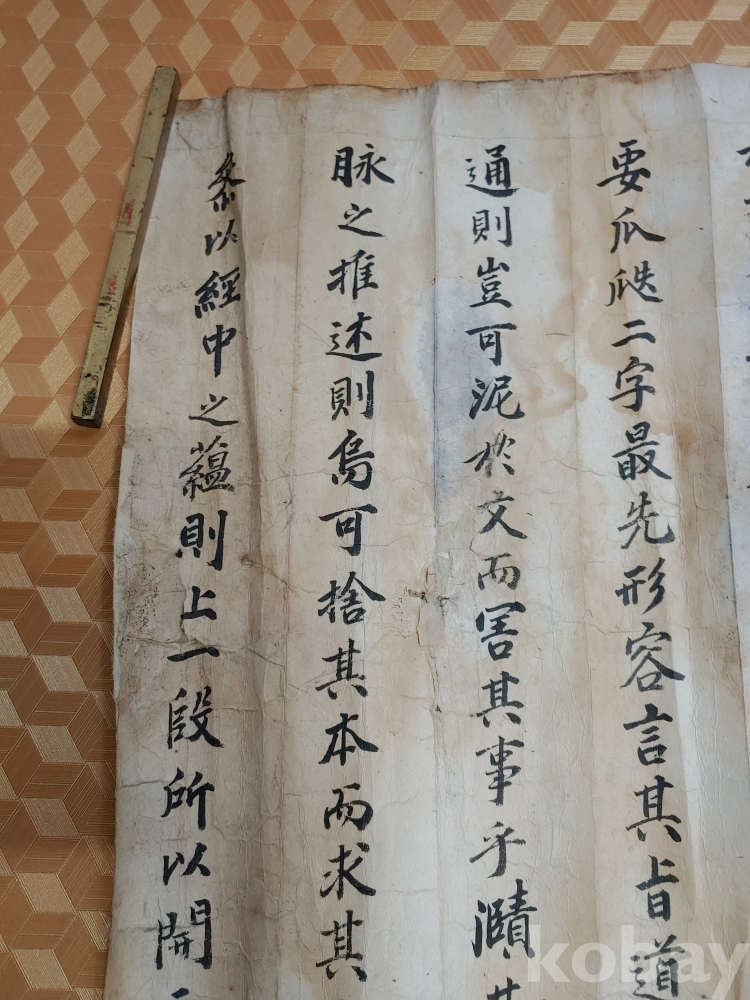 要瓜瓞二字最先形容言其旨道
通則豈可泥於文而害其事乎
脉之推述則烏可捨其本而求其
叅以經中之藴則上一段所以開
kobay